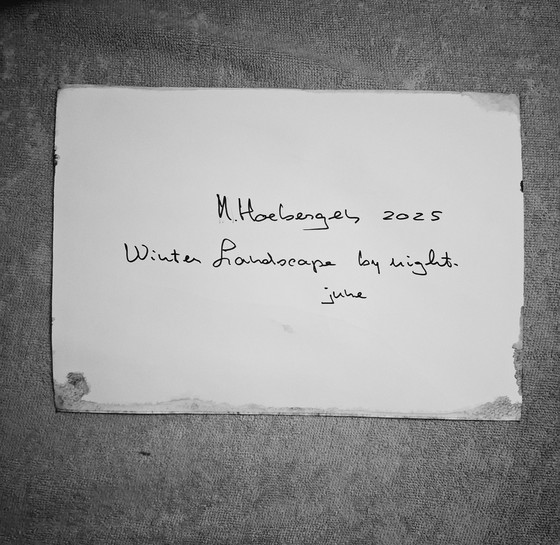 M. Hoebergeh 2025
Winter Landscape by night.
june